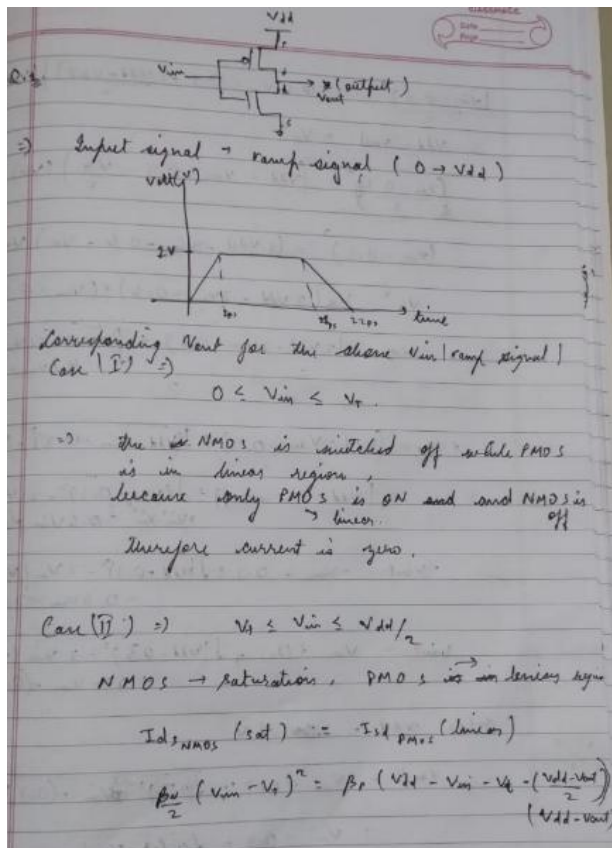 classmate
Date
Page
Vdd
Q.1.
Vin
(output)
Vout
s
=> Input signal → ramp signal ( 0 → Vdd )
Volt(V)
2V
2ps
22ps
time
Corresponding Vout for the above Vin (ramp signal)
Case (I) =>
0 ≤ Vin ≤ VT.
=> the NMOS is switched off while PMOS
is in linear region,
because only PMOS is ON and and NMOS is
→ linear. off
therefore current is zero.
Case (II) => Vt ≤ Vin ≤ Vdd/2
NMOS → saturation, PMOS is in
Ids NMOS (sat) = Isd PMOS (linear)
βN/2 (Vin - VT)² = βP (Vdd - Vin - Vt - (Vdd-Vout)/2)
(Vdd-Vout)